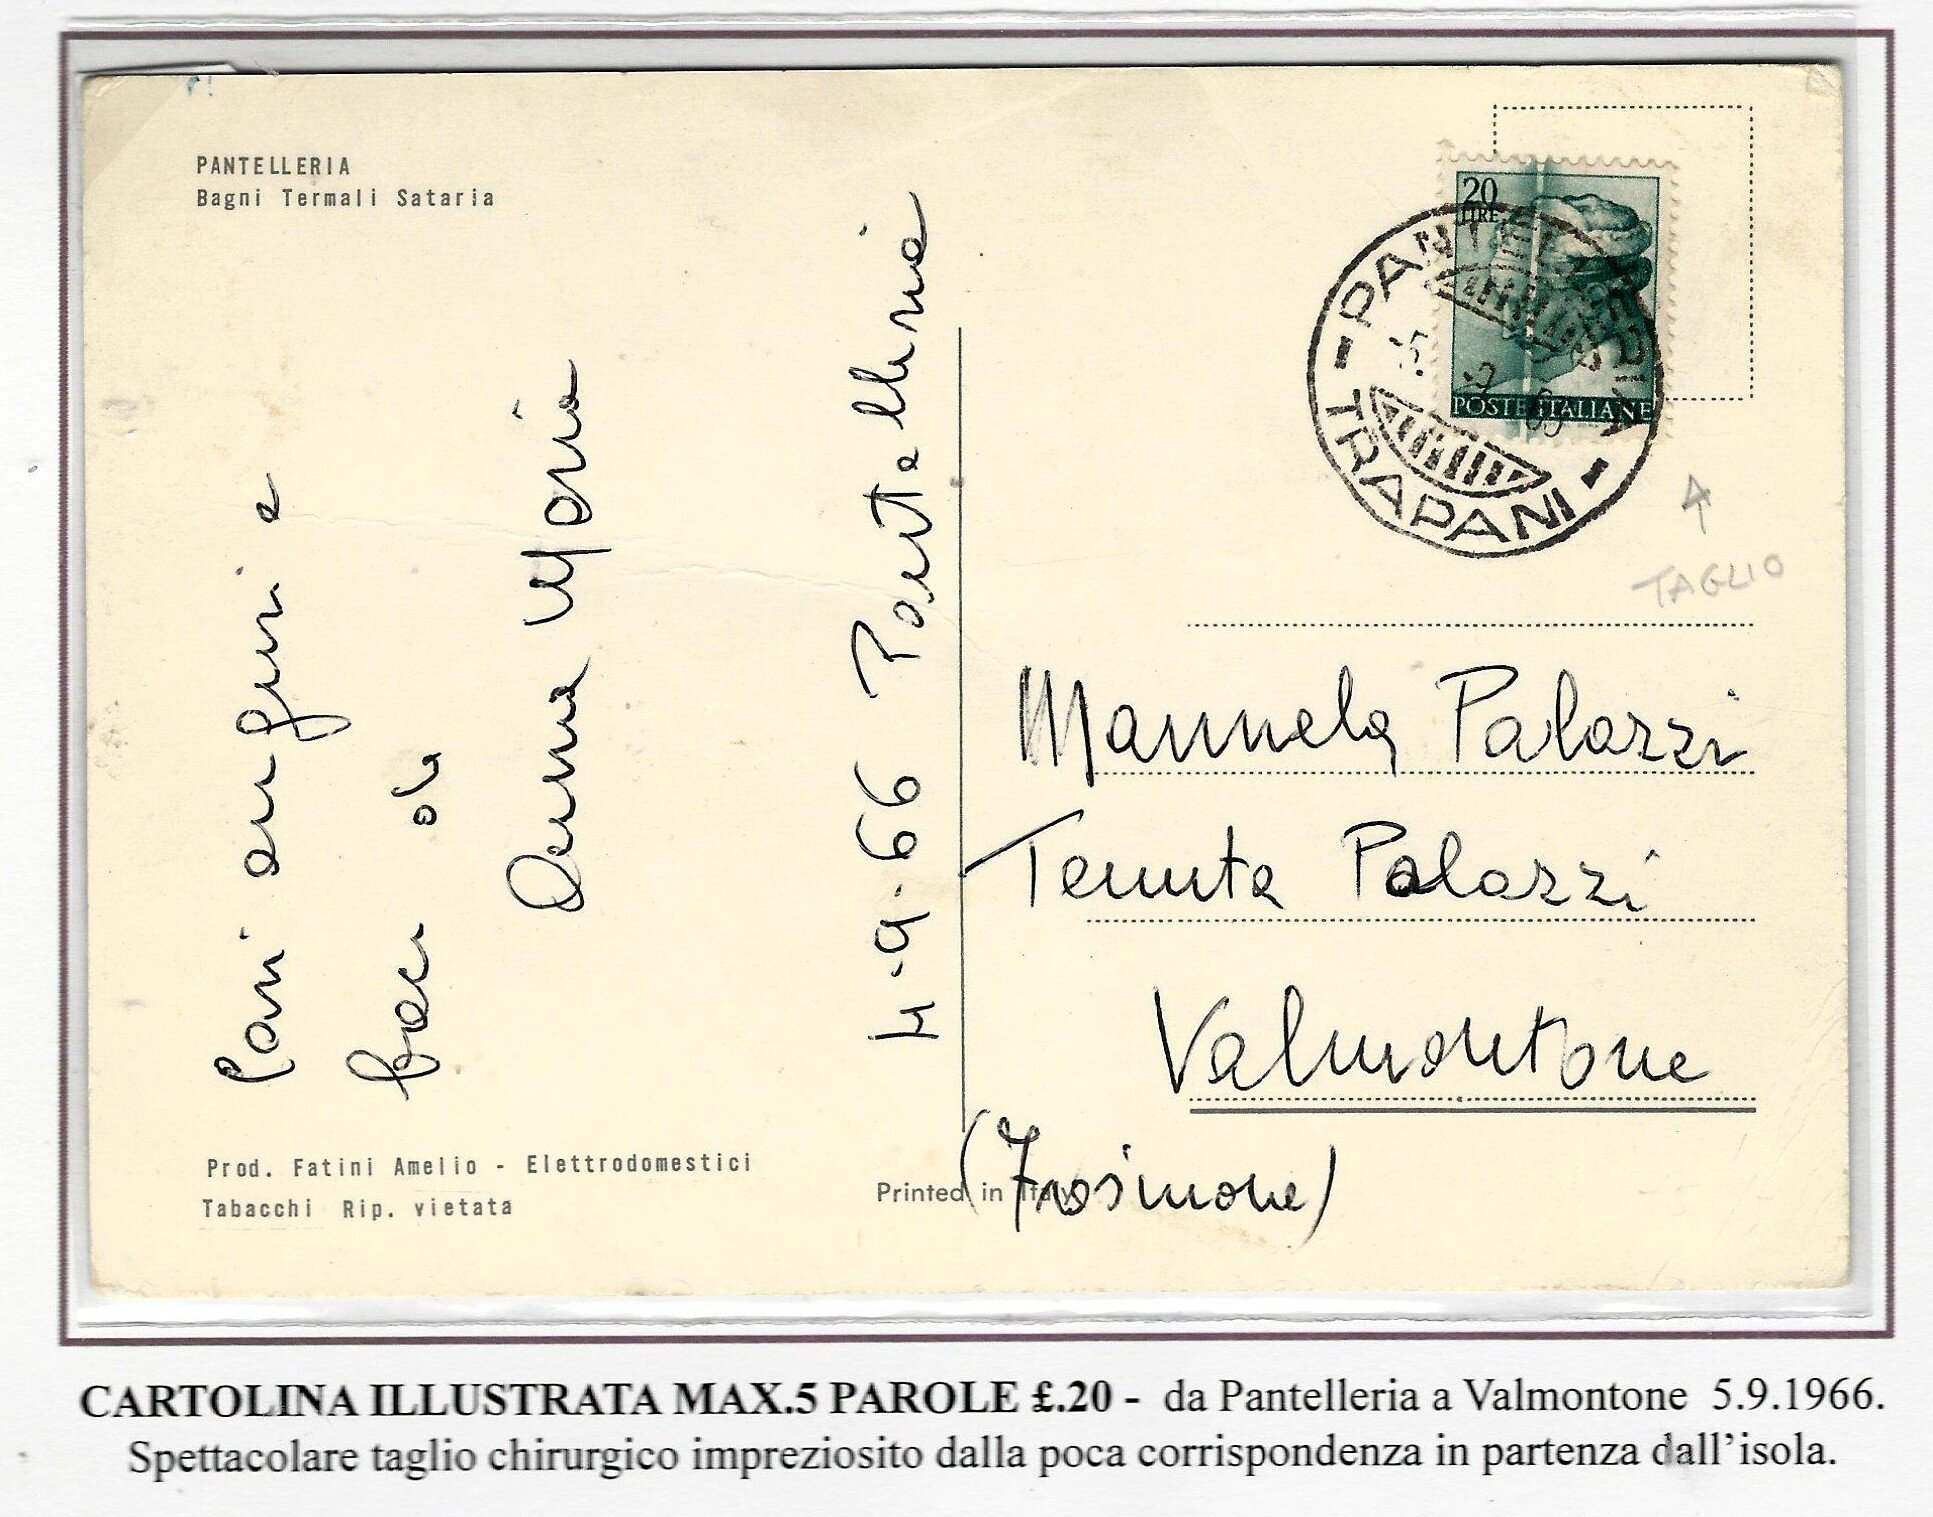 PANTELLERIA
Bagni Termali Sataria
Cari auguri e
baci da
Anna Maria
4-9-66 Pantelleria
20
LIRE
POSTE ITALIANE
PANTELLERIA
-5.-9 66
TRAPANI
TAGLIO
Manuela Palazzi
Tenuta Palazzi
Valmontone
(Frosinone)
Prod. Fatini Amelio - Elettrodomestici
Tabacchi Rip. vietata
Printed in Italy
CARTOLINA ILLUSTRATA MAX.5 PAROLE £.20 - da Pantelleria a Valmontone 5.9.1966.
Spettacolare taglio chirurgico impreziosito dalla poca corrispondenza in partenza dall’isola.